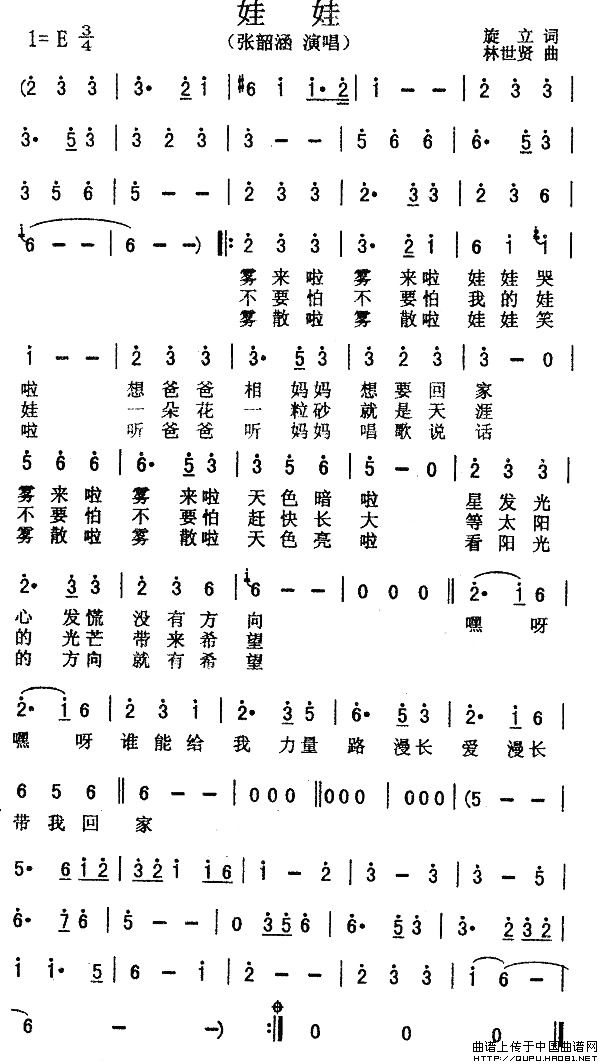 娃 娃
1=E 3/4
（张韶涵 演唱）
旋 立 词
林世贤 曲
(2 3 3 | 3· 2 1 | #6 1 1·2 | 1 - - | 2 3 3 |
3· 5 3 | 3 2 3 | 3 - - | 5 6 6 | 6· 5 3 |
3 5 6 | 5 - - | 2 3 3 | 2· 3 3 | 2 3 6 |
6 - - | 6 - -) |: 2 3 3 | 3· 2 1 | 6 1 1 |
雾来啦 雾来啦 娃娃哭
不要怕 不要怕 我的娃
雾散啦 雾散啦 娃娃笑
1 - - | 2 3 3 | 3· 5 3 | 3 2 3 | 3 - 0 |
啦 想爸爸 相妈妈 想要回家
娃 一朵花 一粒砂 就是天涯
啦 听爸爸 听妈妈 唱歌说话
5 6 6 | 6· 5 3 | 3 5 6 | 5 - 0 | 2 3 3 |
雾来啦 雾来啦 天色暗啦 星发光
不要怕 不要怕 赶快长大 等太阳
雾散啦 雾散啦 天色亮啦 看阳光
2· 3 3 | 2 3 6 | 6 - - | 0 0 0 || 2· 1 6 |
心发慌 没有方向 嘿呀
的光芒 带来希望
的方向 就有希望
2· 1 6 | 2 3 1 | 2· 3 5 | 6· 5 3 | 2· 1 6 |
嘿 呀 谁能给 我 力量 路 漫长 爱 漫长
6 5 6 || 6 - - | 0 0 0 || 0 0 0 | 0 0 0 | (5 - - |
带我回 家
5· 6 1 2 | 3 2 1 1 6 | 1 - 2 | 3 - 3 | 3 - 5 |
6· 7 6 | 5 - - | 0 3 5 6 | 6· 5 3 | 3· 2 3 2 |
1 1· 5 | 6 - 1 | 2 - - | 3 3 3 | 1 6 - |
6 - -) :| 0 0 0 ||
曲谱上传于中国曲谱网
http://QUPU.HAO81.NET